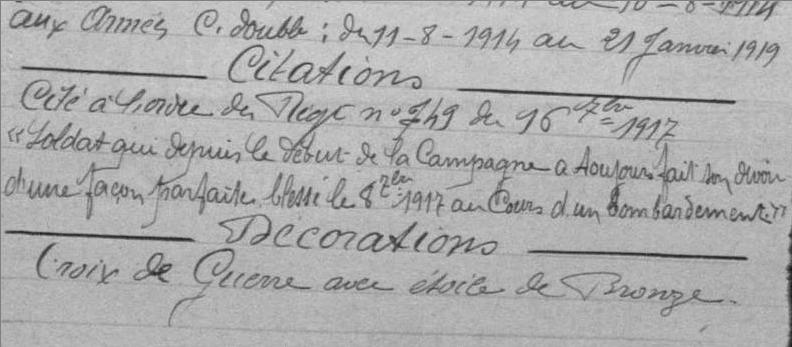 au 10-8-1914
aux Armés C. double : du 11-8-1914 au 21 Janvier 1919
Citations
Cité à l'ordre du Régt n° 749 du 16 7bre 1917
"Soldat qui depuis le début de la Campagne a toujours fait son devoir
d'une façon parfaite, blessé le 8 7bre 1917 au Cours d'un bombardement."
Décorations
Croix de Guerre avec étoile de Bronze.